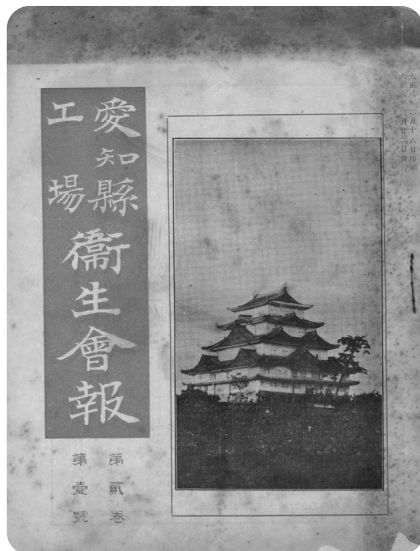 愛知縣
工場
衞生會報
第貳卷
第壹號